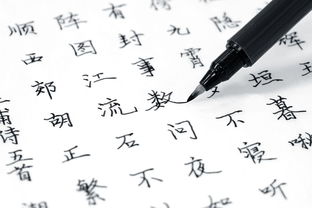 顺 阵 有
西 图 封 九 隐
郊 江 事 霄
胡 流 数 垣
五首 正 石 问 不 暮
繁 不 夜 寝
如 听